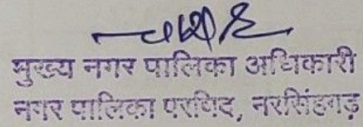 मुख्य नगर पालिका अधिकारी
नगर पालिका परषिद, नरसिंहगढ़